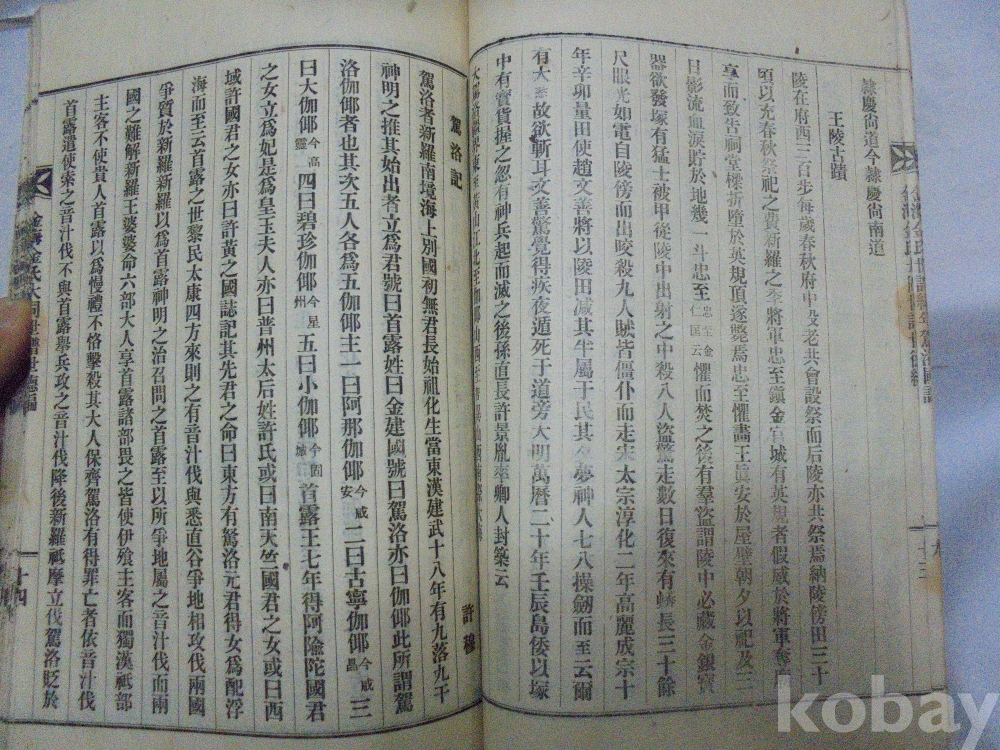 隷慶尙道今隷慶尙南道
王陵古蹟
陵在府西三百步每歲春秋府中父老共會設祭而后陵亦共祭焉納陵傍田三十
頃以充春秋祭祀之費新羅之季將軍忠至鎭金官城有英規者假威於將軍奪
享而致告祠堂樑折隋於英規頂逐斃焉忠至懼畵王眞安於屋壁朝夕以祀及三
日影流血淚貯於地幾一斗忠至 忠至金仁匡云 懼而焚之後有羣盜謂陵中必藏金銀寶
器欲發塚有猛士被甲從陵中出射之中殺八人盜驚走數日復來有蟒長三十餘
尺眼光如電自陵傍而出咬殺九人賊皆僵仆而走宋太宗淳化二年高麗成宗十
年辛卯量田使趙文善將以陵田減其半屬于民其夕夢神人七八操劒而至云爾
有大 故欲斬耳文善驚覺得疾夜遁死于道旁大明萬曆二十年壬辰島倭以塚
中有寶貨握之忽有神兵起而滅之後孫直長許景胤率卿人封築云
駕洛記
許穆
駕洛者新羅南境海上別國初無君長始祖化生當東漢建武十八年有九落九干
神明之推其始出者立爲君號曰首露姓曰金建國號曰駕洛亦曰伽倻此所謂駕
洛伽倻者也其次五人各爲五伽倻主一曰阿那伽倻 今咸安 二曰古寧伽倻 今咸昌 三
曰大伽倻 今高靈 四曰碧珍伽倻 今星州 五曰小伽倻 今固城 首露王七年得阿隃陀國君
之女立爲妃是爲皇玉夫人亦曰普州太后姓許氏或曰南天竺國君之女或曰西
域許國君之女亦曰許黃之國誌記其先君之命曰東方有駕洛元君得女爲配浮
海而至云首露之世黎民太康四方來則之有音汁伐與悉直谷爭地相攻伐兩國
爭質於新羅新羅以爲首露神明之治召問之首露至以所爭地屬之音汁伐而兩
國之難解新羅王婆婆命六部大人享首露諸部畏之皆使伊飡主客而獨漢祗部
主客不使貴人首露以爲慢禮不恪擊殺其大人保齊駕洛有得罪亡者依音汁伐
首露遣使索之音汁伐不與首露擧兵攻之音汁伐降後新羅祗摩立伐駕洛貶於
十四
kobay